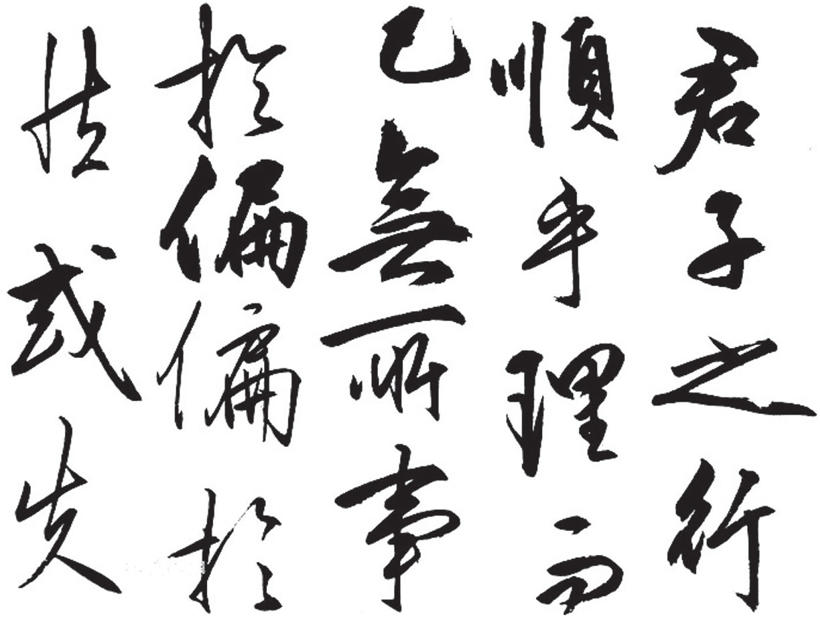 君子之行
順乎理而
已無所事
於偏偏於
怯或失